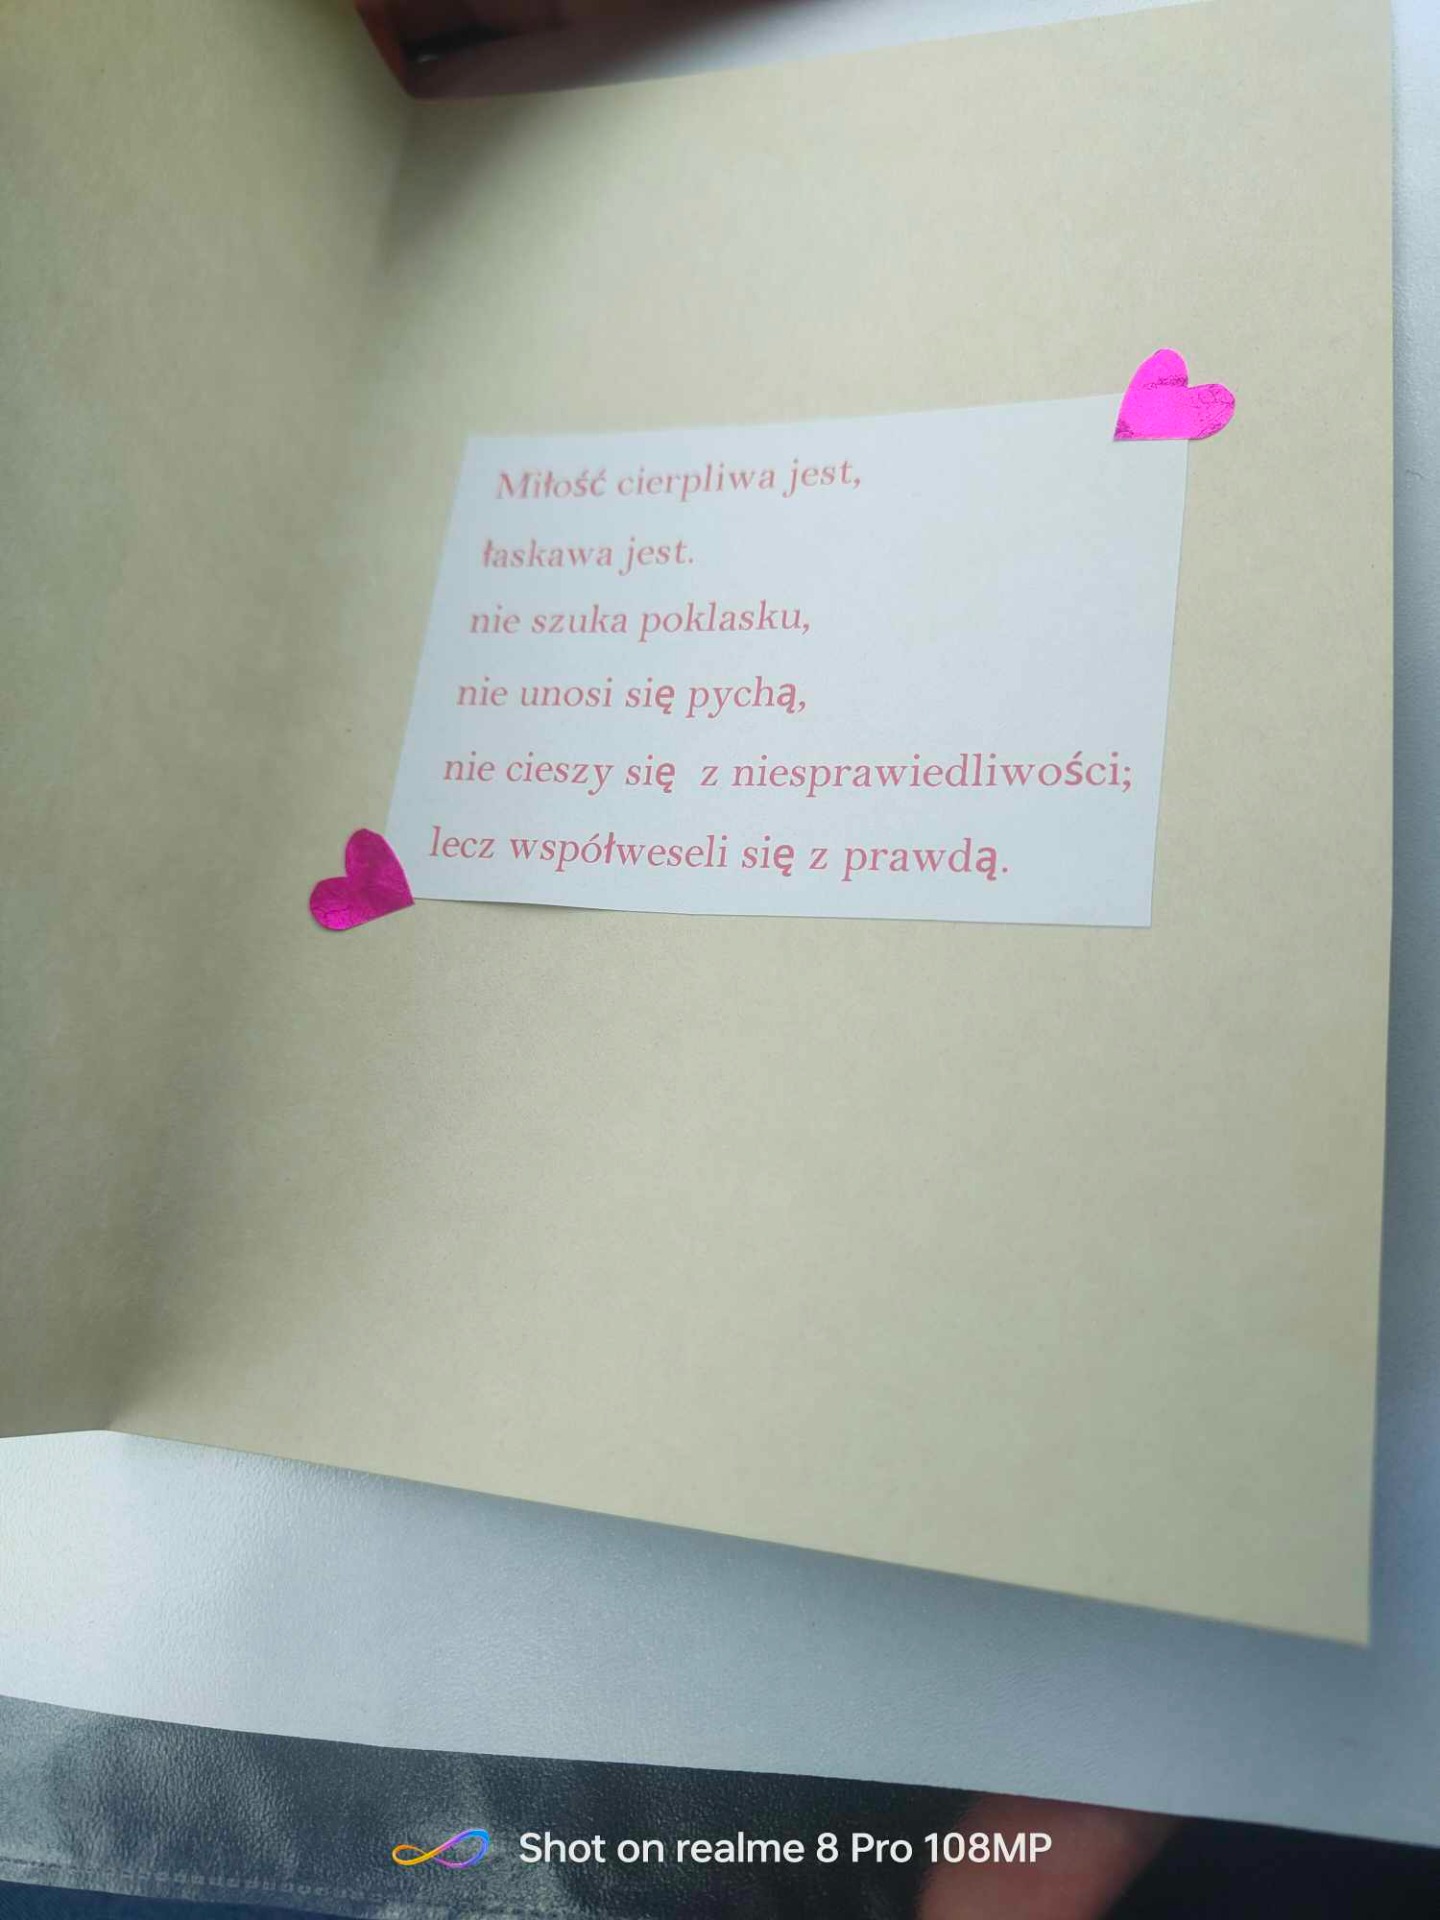 Miłość cierpliwa jest,
łaskawa jest.
nie szuka poklasku,
nie unosi się pychą,
nie cieszy się  z niesprawiedliwości;
lecz współweseli się z prawdą.
Shot on realme 8 Pro 108MP